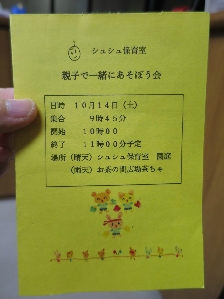 シュシュ保育室
親子で一緒にあそぼう会
日時 10月14日(土)
集合 9時45分
開始 10時00
終了 11時00分予定
場所 (晴天)シュシュ保育室 園庭
(雨天)お茶の間広場茶ちゃ